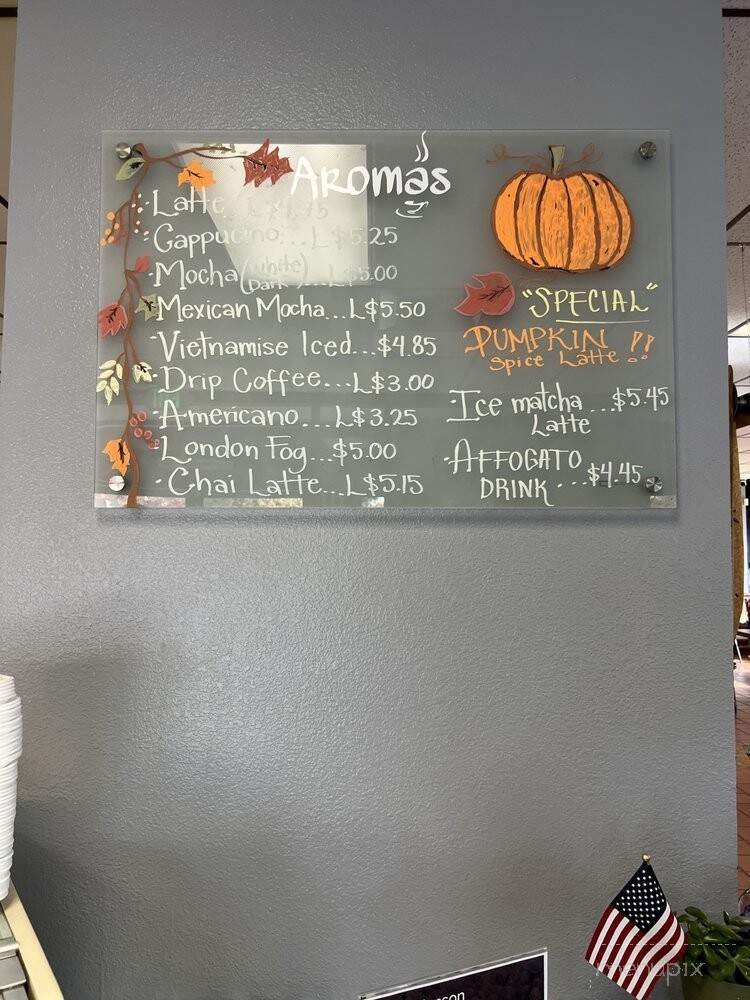 Aromas
·Latte
·Cappucino...L$5.25
·Mocha (white)
Dark
...L$5.00
·Mexican Mocha...L$5.50
·Vietnamise Iced...$4.85
·Drip Coffee...L$3.00
·Americano...L$3.25
·London Fog...$5.00
·Chai Latte...L$5.15
"SPECIAL"
PUMPKIN
Spice Latte!!
·Ice matcha...$5.45
Latte
·AFFOGATO
DRINK...$4.45
menupix